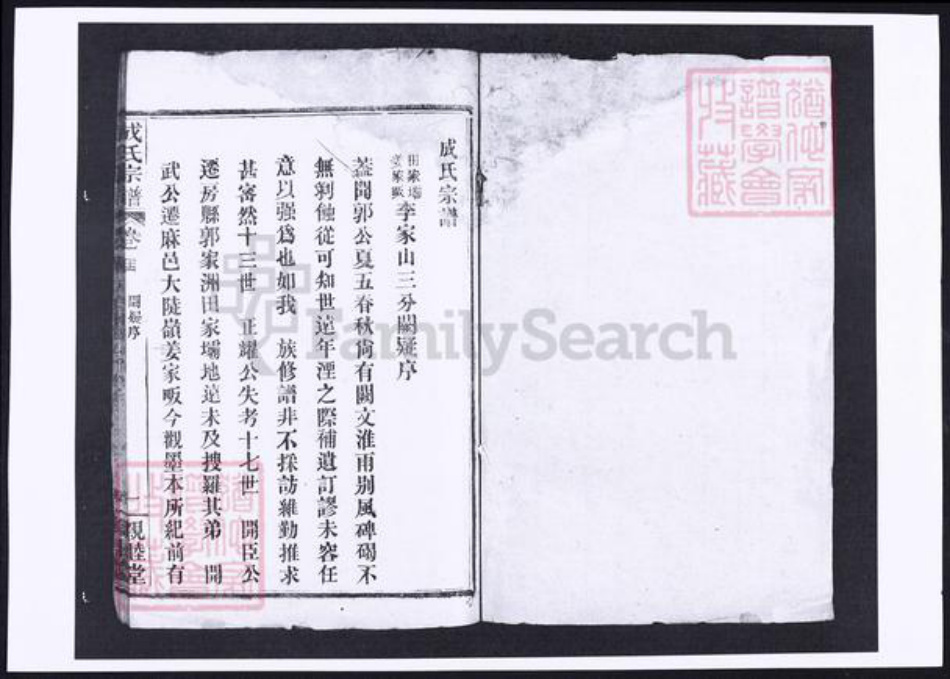 成氏宗譜
田家壩
姜家畈
李家山三分闕疑序
蓋聞郭公夏五春秋尙有闕文淮雨別風碑碣不
無剥蝕從可知世遠年湮之際補遺訂謬未容任
意以强爲也如我 族修譜非不採訪維勤推求
甚審然十三世 正耀公失考十七世 開臣公
遷房縣郭家洲田家壩地遠未及搜羅其弟 開
武公遷麻邑大陡嶺姜家畈今觀墨本所紀前有
成氏宗譜
卷一
闕疑序
一
親睦堂
譜學會
收藏
FamilySearch